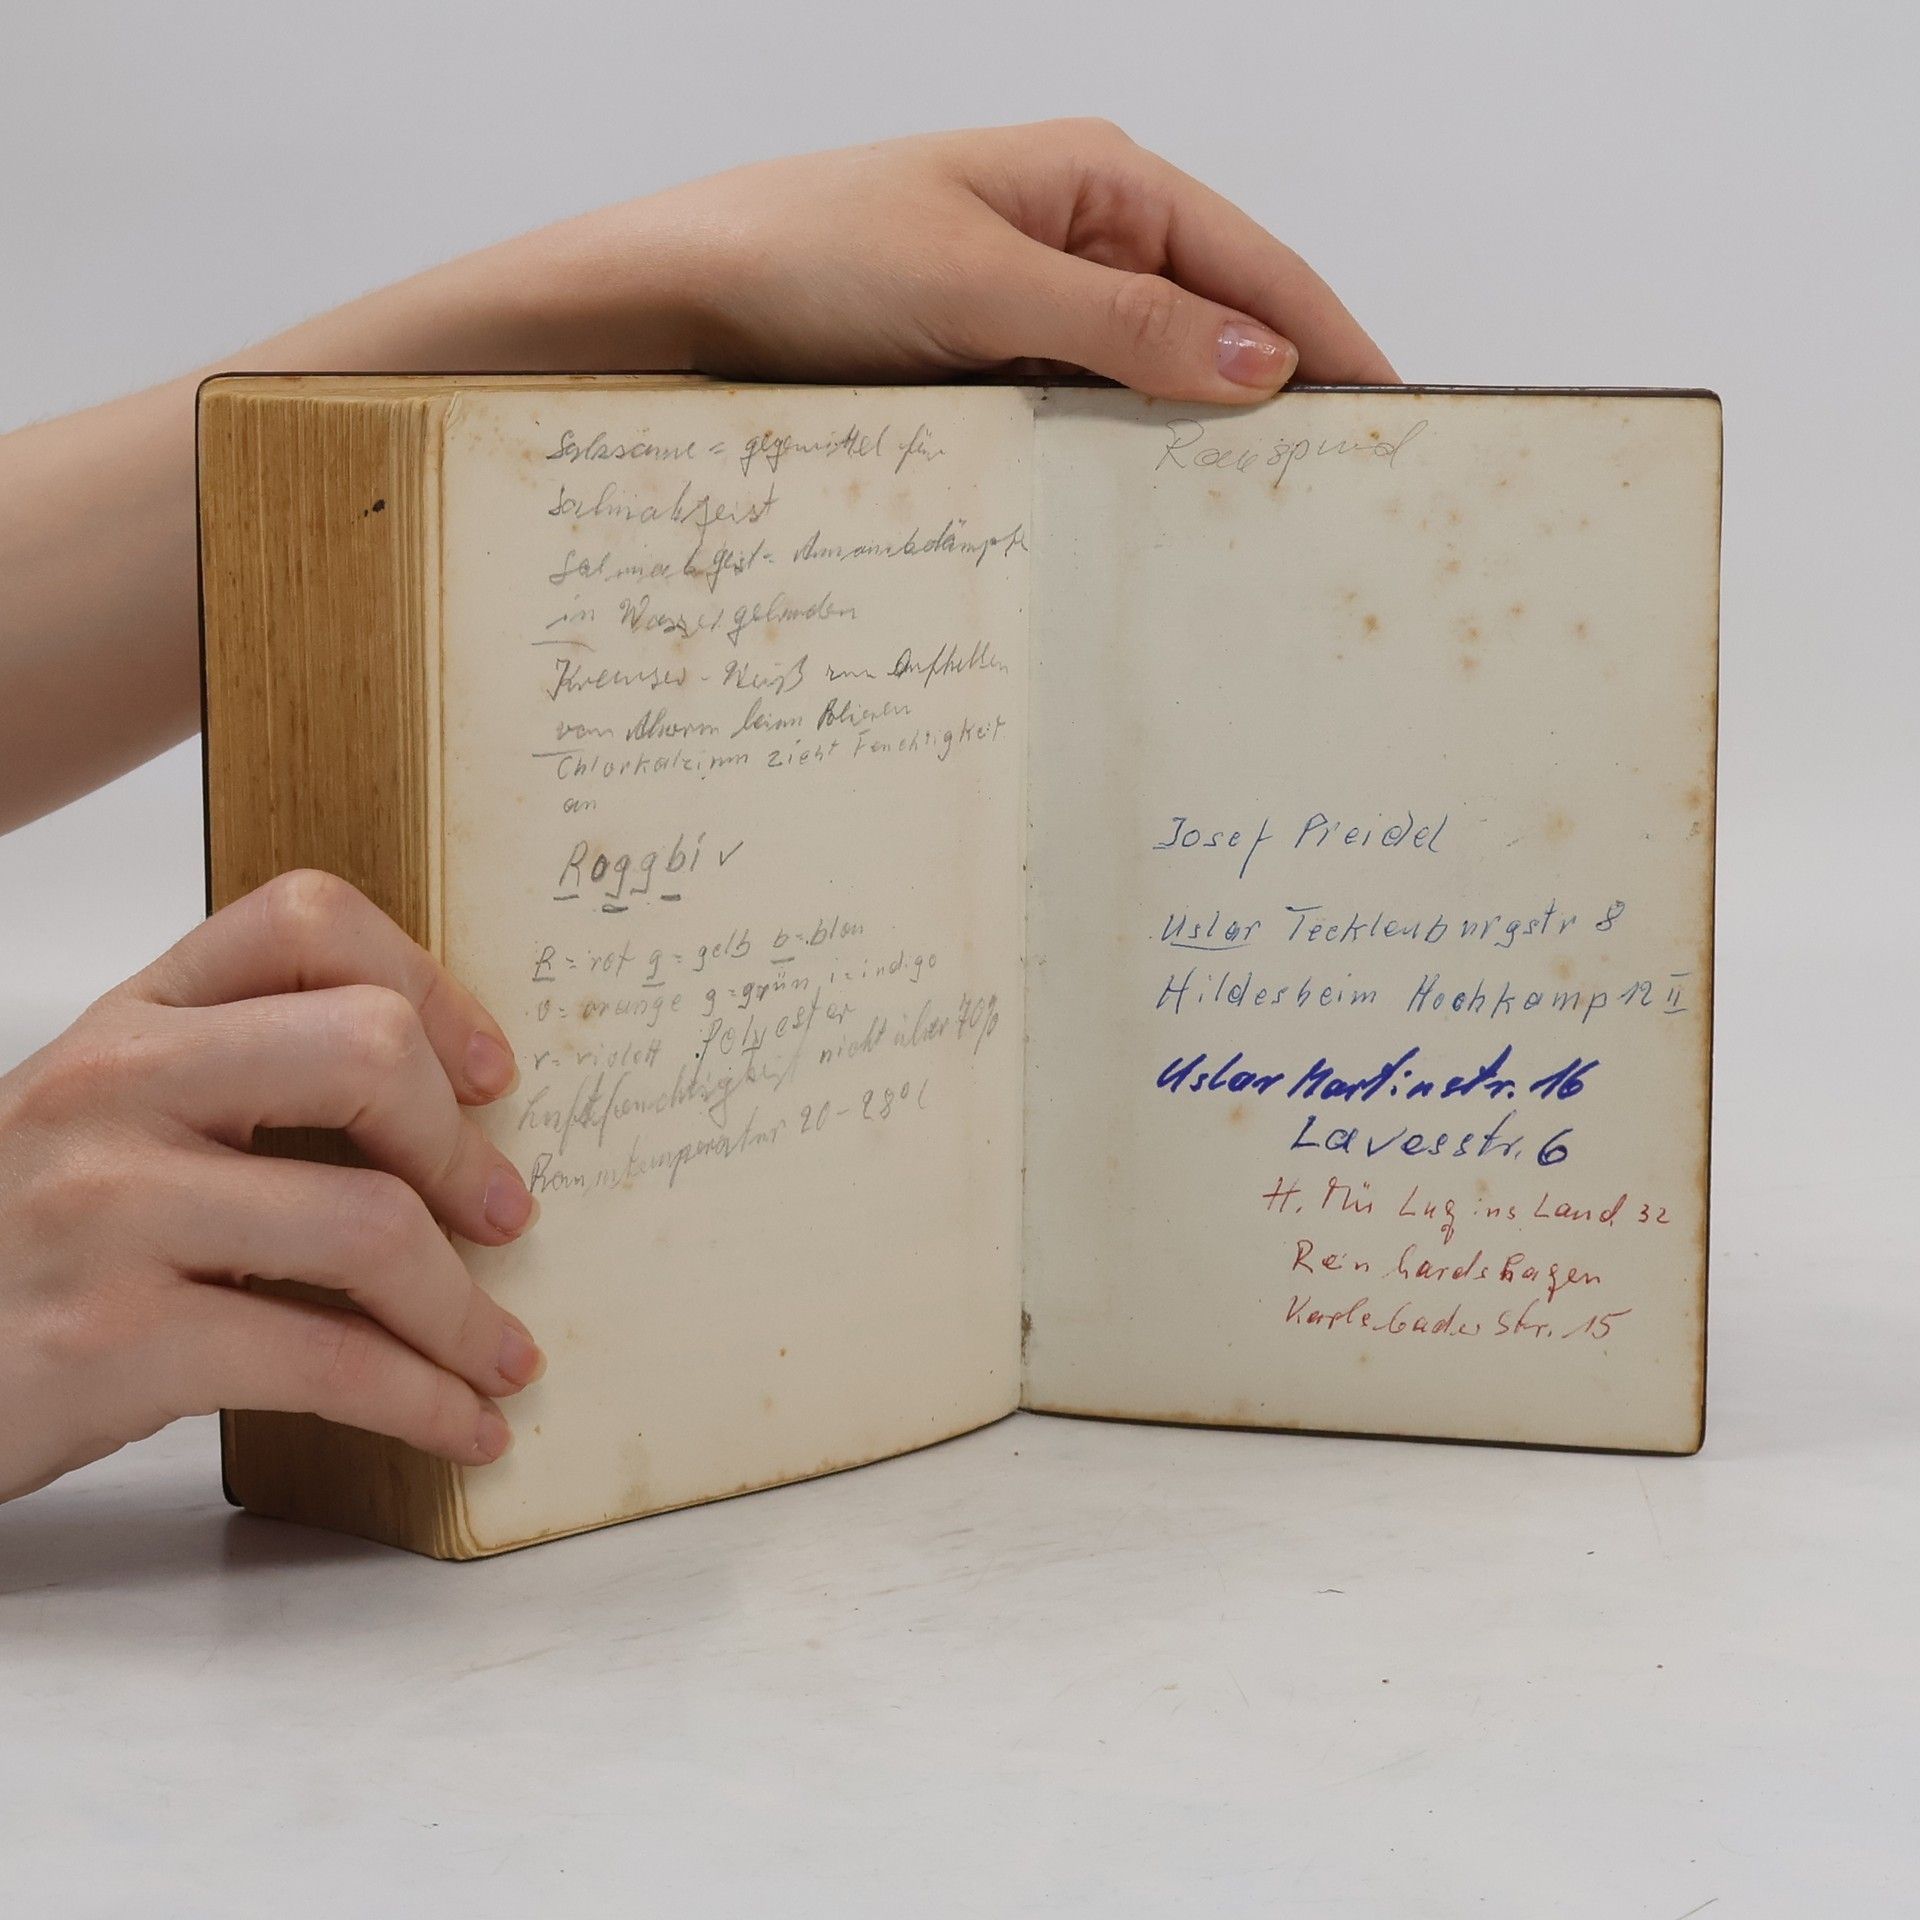 Salzsäure = gegenmittel für
Salmiakgeist
Salmiakgeist = Amoniakdämpfe
in Wasser gebunden
Kremser-Weiß zum Aufhellen
von Ahorn beim Polieren
Chlorkalzium zieht Feuchtigkeit
an
Roggbiv
R = rot g = gelb b = blau
o = orange g = grün i = indigo
v = violett Polyester
Luftfeuchtigkeit nicht über 70%
Raumtemperatur 20-28°C
Josef Preidel
Uslar Tecklenburgstr 8
Hildesheim Hochkamp 12 II
Uslar Martinstr. 16
Lavesstr. 6
H. Mü Lug ins Land 32
Reinhardshagen
Karlsbader Str. 15